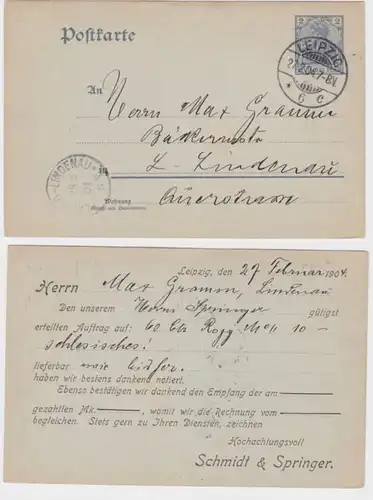 Postkarte
2 2
LEIPZIG
* 6 c
An
Herrn Max Gramm
Bäckermstr
L-Lindenau
Querstrasse
LINDENAU
Wohnung
Leipzig, den 27 Februar 1904.
Herrn Max Gramm, Lindenau
Den unserem Herrn Springer gütigst
erteilten Auftrag auf: 60 Ctr Rogg 10 -
schlesisches!
lieferbar wie bisher.
haben wir bestens dankend notiert.
Ebenso bestätigen wir dankend den Empfang der am
gezahlten Mk. , womit wir die Rechnung vom
begleichen. Stets gern zu Ihren Diensten, zeichnen
Hochachtungsvoll
Schmidt & Springer.